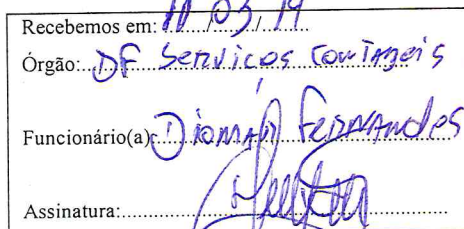 Recebemos em: 11/03/19
Órgão: DF Serviços Contábeis
Funcionário(a): Diomar Fernandes
Assinatura: